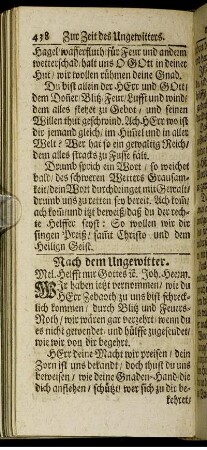 438 Zur Zeit des Ungewitters.
Hagel wasserfluth für Feur und anderm
wetterschad halt uns O GOtt in deiner
Hut / wir wollen rühmen deine Gnad.
Du bist allein der HErr und GOtt /
dem Doñer Blitz Feur / Lufft und wind /
dem alles stehet zu Gebot / und seinen
Willen thut geschwind. Ach HErr wo ist
dir jemand gleich / im Him̃el und in aller
Welt? Wer hat so ein gewaltig Reich /
dem alles stracks zu Fusse falt.
Drumb sprich ein Wort / so weichet
bald / des schweren Wetters Grausam-
keit / dein Wort durchdringet mit Gewalt /
drumb uns zu retten sey bereit. Ach kom̃ /
ach kom̃ und itzt beweiß / daß du der rech-
te Helffer seyst: So wollen wir dir
singen Preiß / sam̃t Christo und dem
Heilign Geist.
Nach dem Ungewitter.
Mel. Helfft mir Gottes ꝛc. Joh. Herm.
WIr haben jetzt vernommen / wie du
HErr Zebaoth zu uns bist schreck-
lich kommen / durch Blitz und Feuers-
Noth / wir wären gar verzehrt / wenn du
es nicht gewendet und hülffe zugesendet /
wie wir von dir begehrt.
HErr deine Macht wir preisen / dein
Zorn ist uns bekandt / doch thust du uns
beweisen / wie deine Gnaden-Hand / die
dich anflehen / schützt / wer sich zu dir be-
kehret /